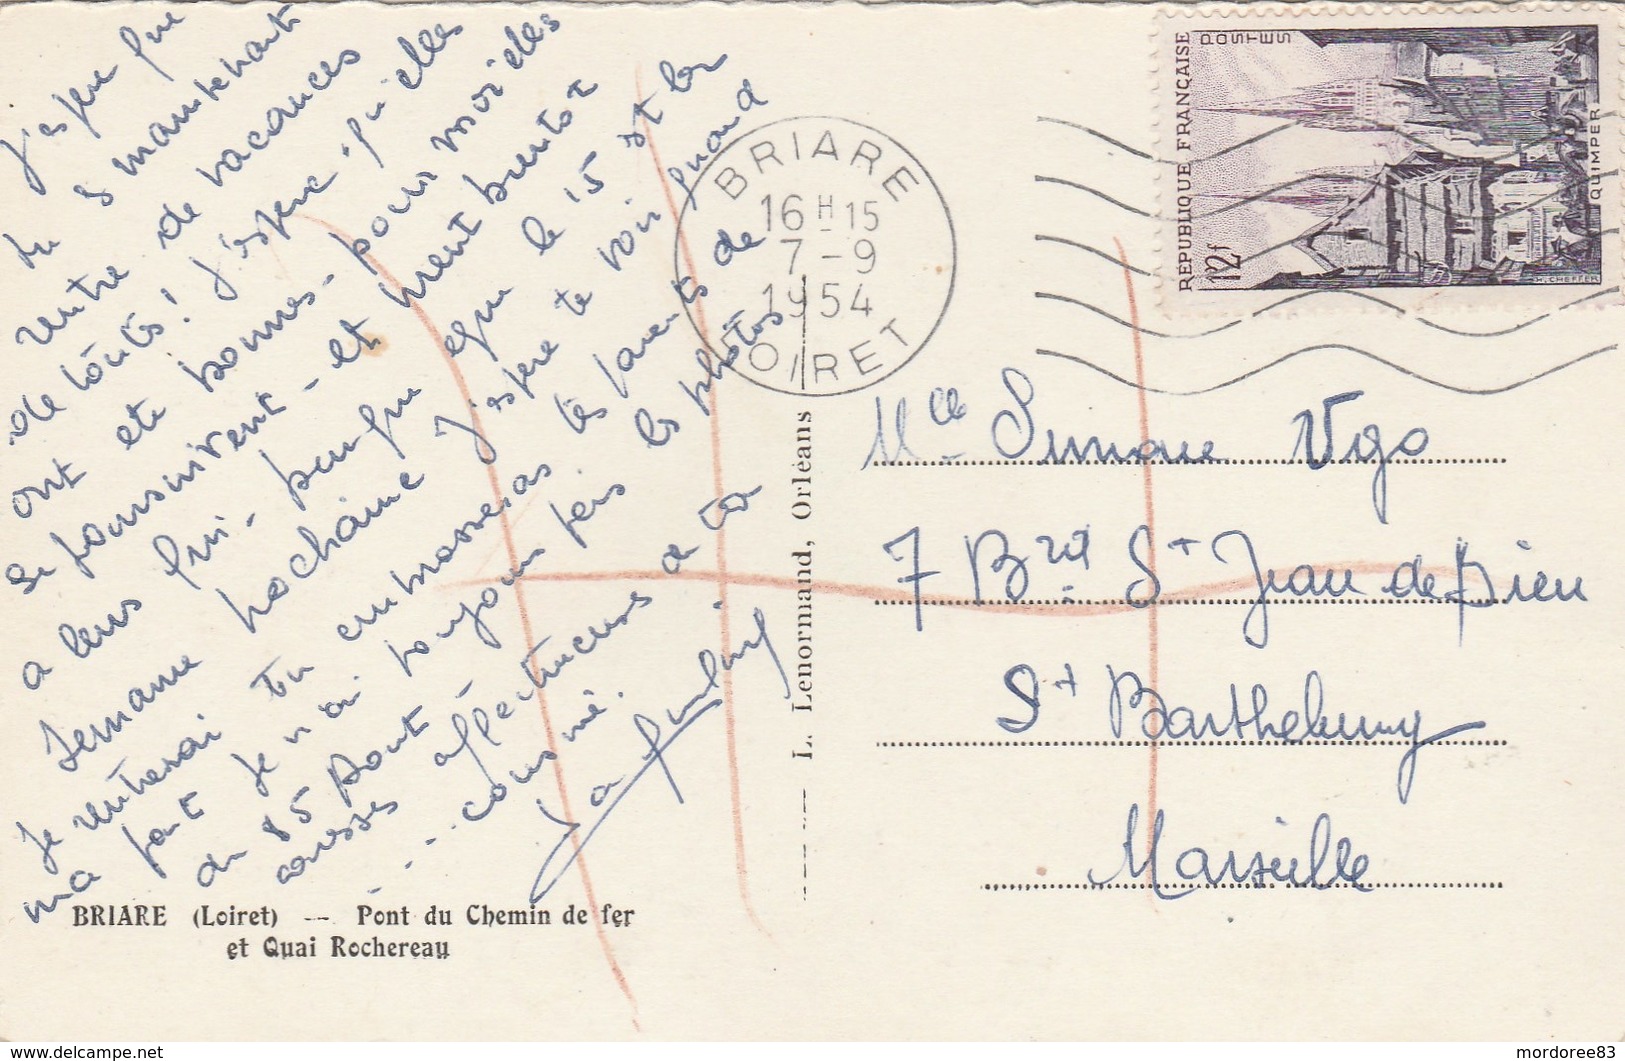 J'espère que
tu es maintenant
rentré de vacances
de toutes! J'espère qu'elles
ont été bonnes - pour moi elles
se poursuivent - et prennent bientôt
à leur fin - puisque le 15 et la
semaine prochaine
je rentrerai J'espère te voir quand
tu embrasseras tes parents de
ma part Je n'ai toujours pas les photos
du 15 août
affectueuses de ta
cousine.
BRIARE (Loiret) -- Pont du Chemin de fer
et Quai Rochereau
L. Lenormand, Orléans
BRIARE
16 H 15
7 - 9
1954
LOIRET
REPUBLIQUE FRANÇAISE
POSTES
12f
QUIMPER
H. CHEFFER
Mlle Simone Vgo
7 Brd St Jean de Dieu
St Barthelemy
Marseille
mordoree83